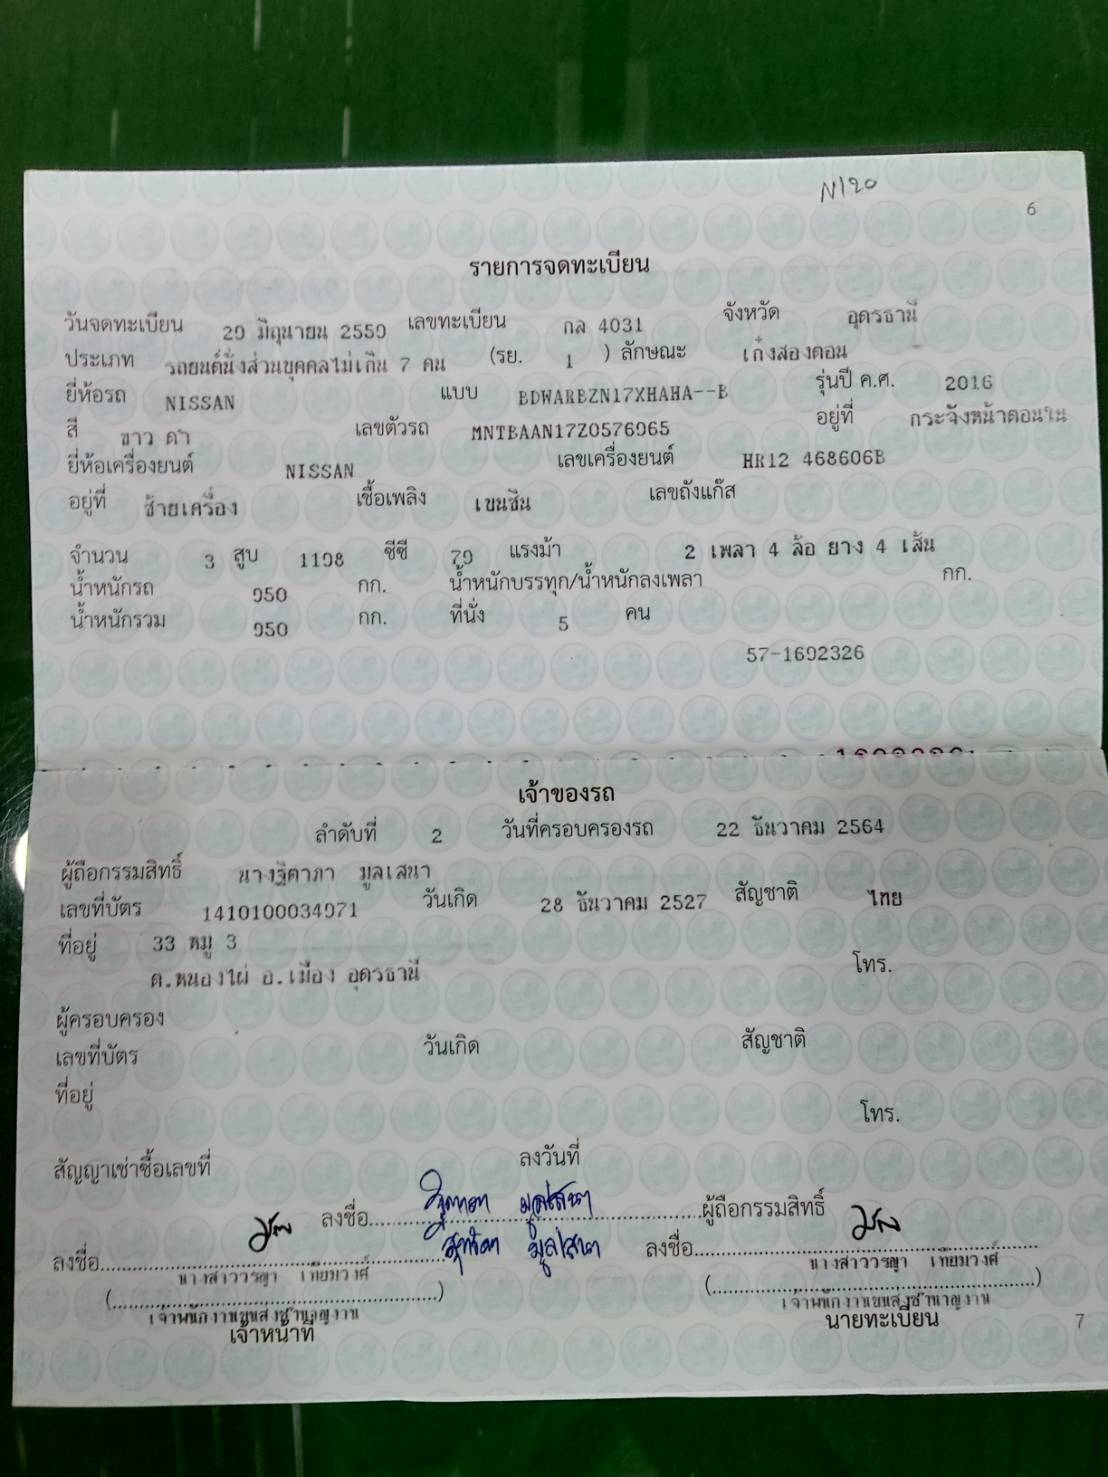 N120
6
รายการจดทะเบียน
วันจดทะเบียน 29 มิถุนายน 2559 เลขทะเบียน กล 4031 จังหวัด อุดรธานี
ประเภท รถยนต์นั่งส่วนบุคคลไม่เกิน 7 คน (รย. 1 ) ลักษณะ เก๋งสองตอน
ยี่ห้อรถ NISSAN แบบ BDWARBZN17XHAHA--B รุ่นปี ค.ศ. 2016
สี ขาว ดำ เลขตัวรถ MNTBAAN17Z0576965 อยู่ที่ กระจังหน้าตอนใน
ยี่ห้อเครื่องยนต์ NISSAN เลขเครื่องยนต์ HR12 468606B
อยู่ที่ ซ้ายเครื่อง เชื้อเพลิง เบนซิน เลขถังแก๊ส
จำนวน 3 สูบ 1198 ซีซี 79 แรงม้า 2 เพลา 4 ล้อ ยาง 4 เส้น
น้ำหนักรถ 950 กก. น้ำหนักบรรทุก/น้ำหนักลงเพลา กก.
น้ำหนักรวม 950 กก. ที่นั่ง 5 คน
57-1692326
เจ้าของรถ
ลำดับที่ 2 วันที่ครอบครองรถ 22 ธันวาคม 2564
ผู้ถือกรรมสิทธิ์ นางฐิตาภา มูลเสนา
เลขที่บัตร 1410100034971 วันเกิด 28 ธันวาคม 2527 สัญชาติ ไทย
ที่อยู่ 33 หมู่ 3
ต.หนองไผ่ อ.เมือง อุดรธานี โทร.
ผู้ครอบครอง
เลขที่บัตร วันเกิด สัญชาติ
ที่อยู่
โทร.
สัญญาเช่าซื้อเลขที่ ลงวันที่
ลงชื่อ ฐิตาภา มูลเสนา ผู้ถือกรรมสิทธิ์
มูลเสนา
ลงชื่อ ลงชื่อ
นางสาววรญา เทียมวงศ์ นางสาววรญา เทียมวงศ์
เจ้าพนักงานขนส่งชำนาญงาน เจ้าพนักงานขนส่งชำนาญงาน
เจ้าหน้าที่ นายทะเบียน
7